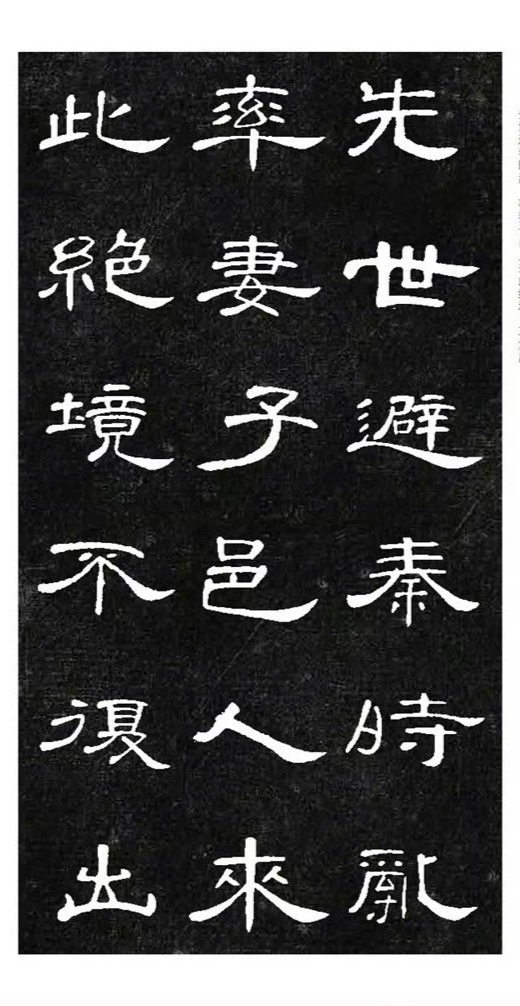 先世避秦時亂
率妻子邑人來
此絕境不復出